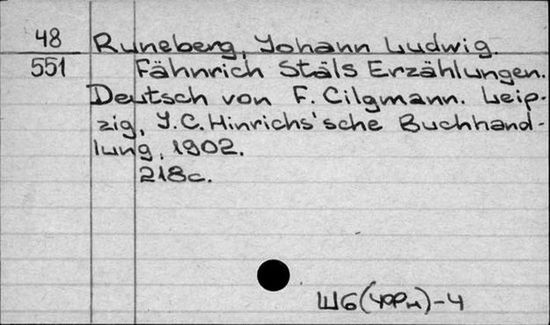 48
551
Runeberg, Johann Ludwig.
Fähnrich Stäls Erzählungen.
Deutsch von F. Cilgmann. Leip-
zig, J.C. Hinrichs'sche Buchhand-
lung, 1902.
218c.
Ш6(4Фн)-4